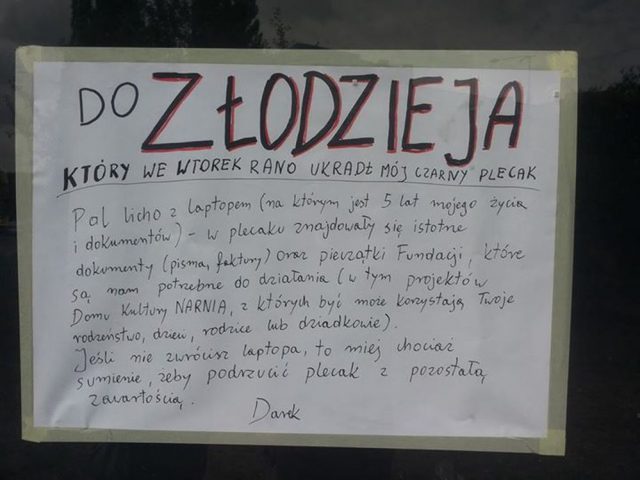 DO ZŁODZIEJA
KTÓRY WE WTOREK RANO UKRADŁ MÓJ CZARNY PLECAK
Pal licho z laptopem (na którym jest 5 lat mojego życia
i dokumentów) - w plecaku znajdowały się istotne
dokumenty (pisma, faktury) oraz pieczątki Fundacji, które
są nam potrzebne do działania (w tym projektów
Domu Kultury NARNIA, z których być może korzystają Twoje
rodzeństwo, dzieci, rodzice lub dziadkowie).
Jeśli nie zwrócisz laptopa, to miej chociaż
sumienie, żeby podrzucić plecak z pozostałą
zawartością.
Darek